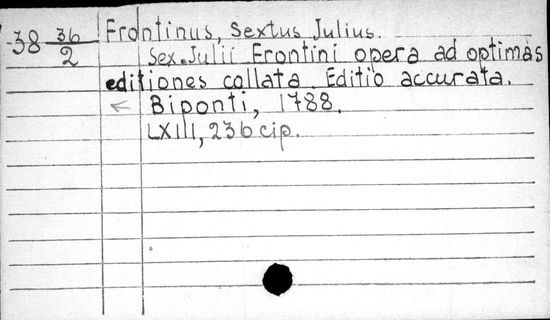 38 36/2 Frontinus, Sextus Julius.
Sex. Julii Frontini opera ad optimas
editiones collata. Editio accurata.
← Biponti, 1788.
LXIII, 236 cip.